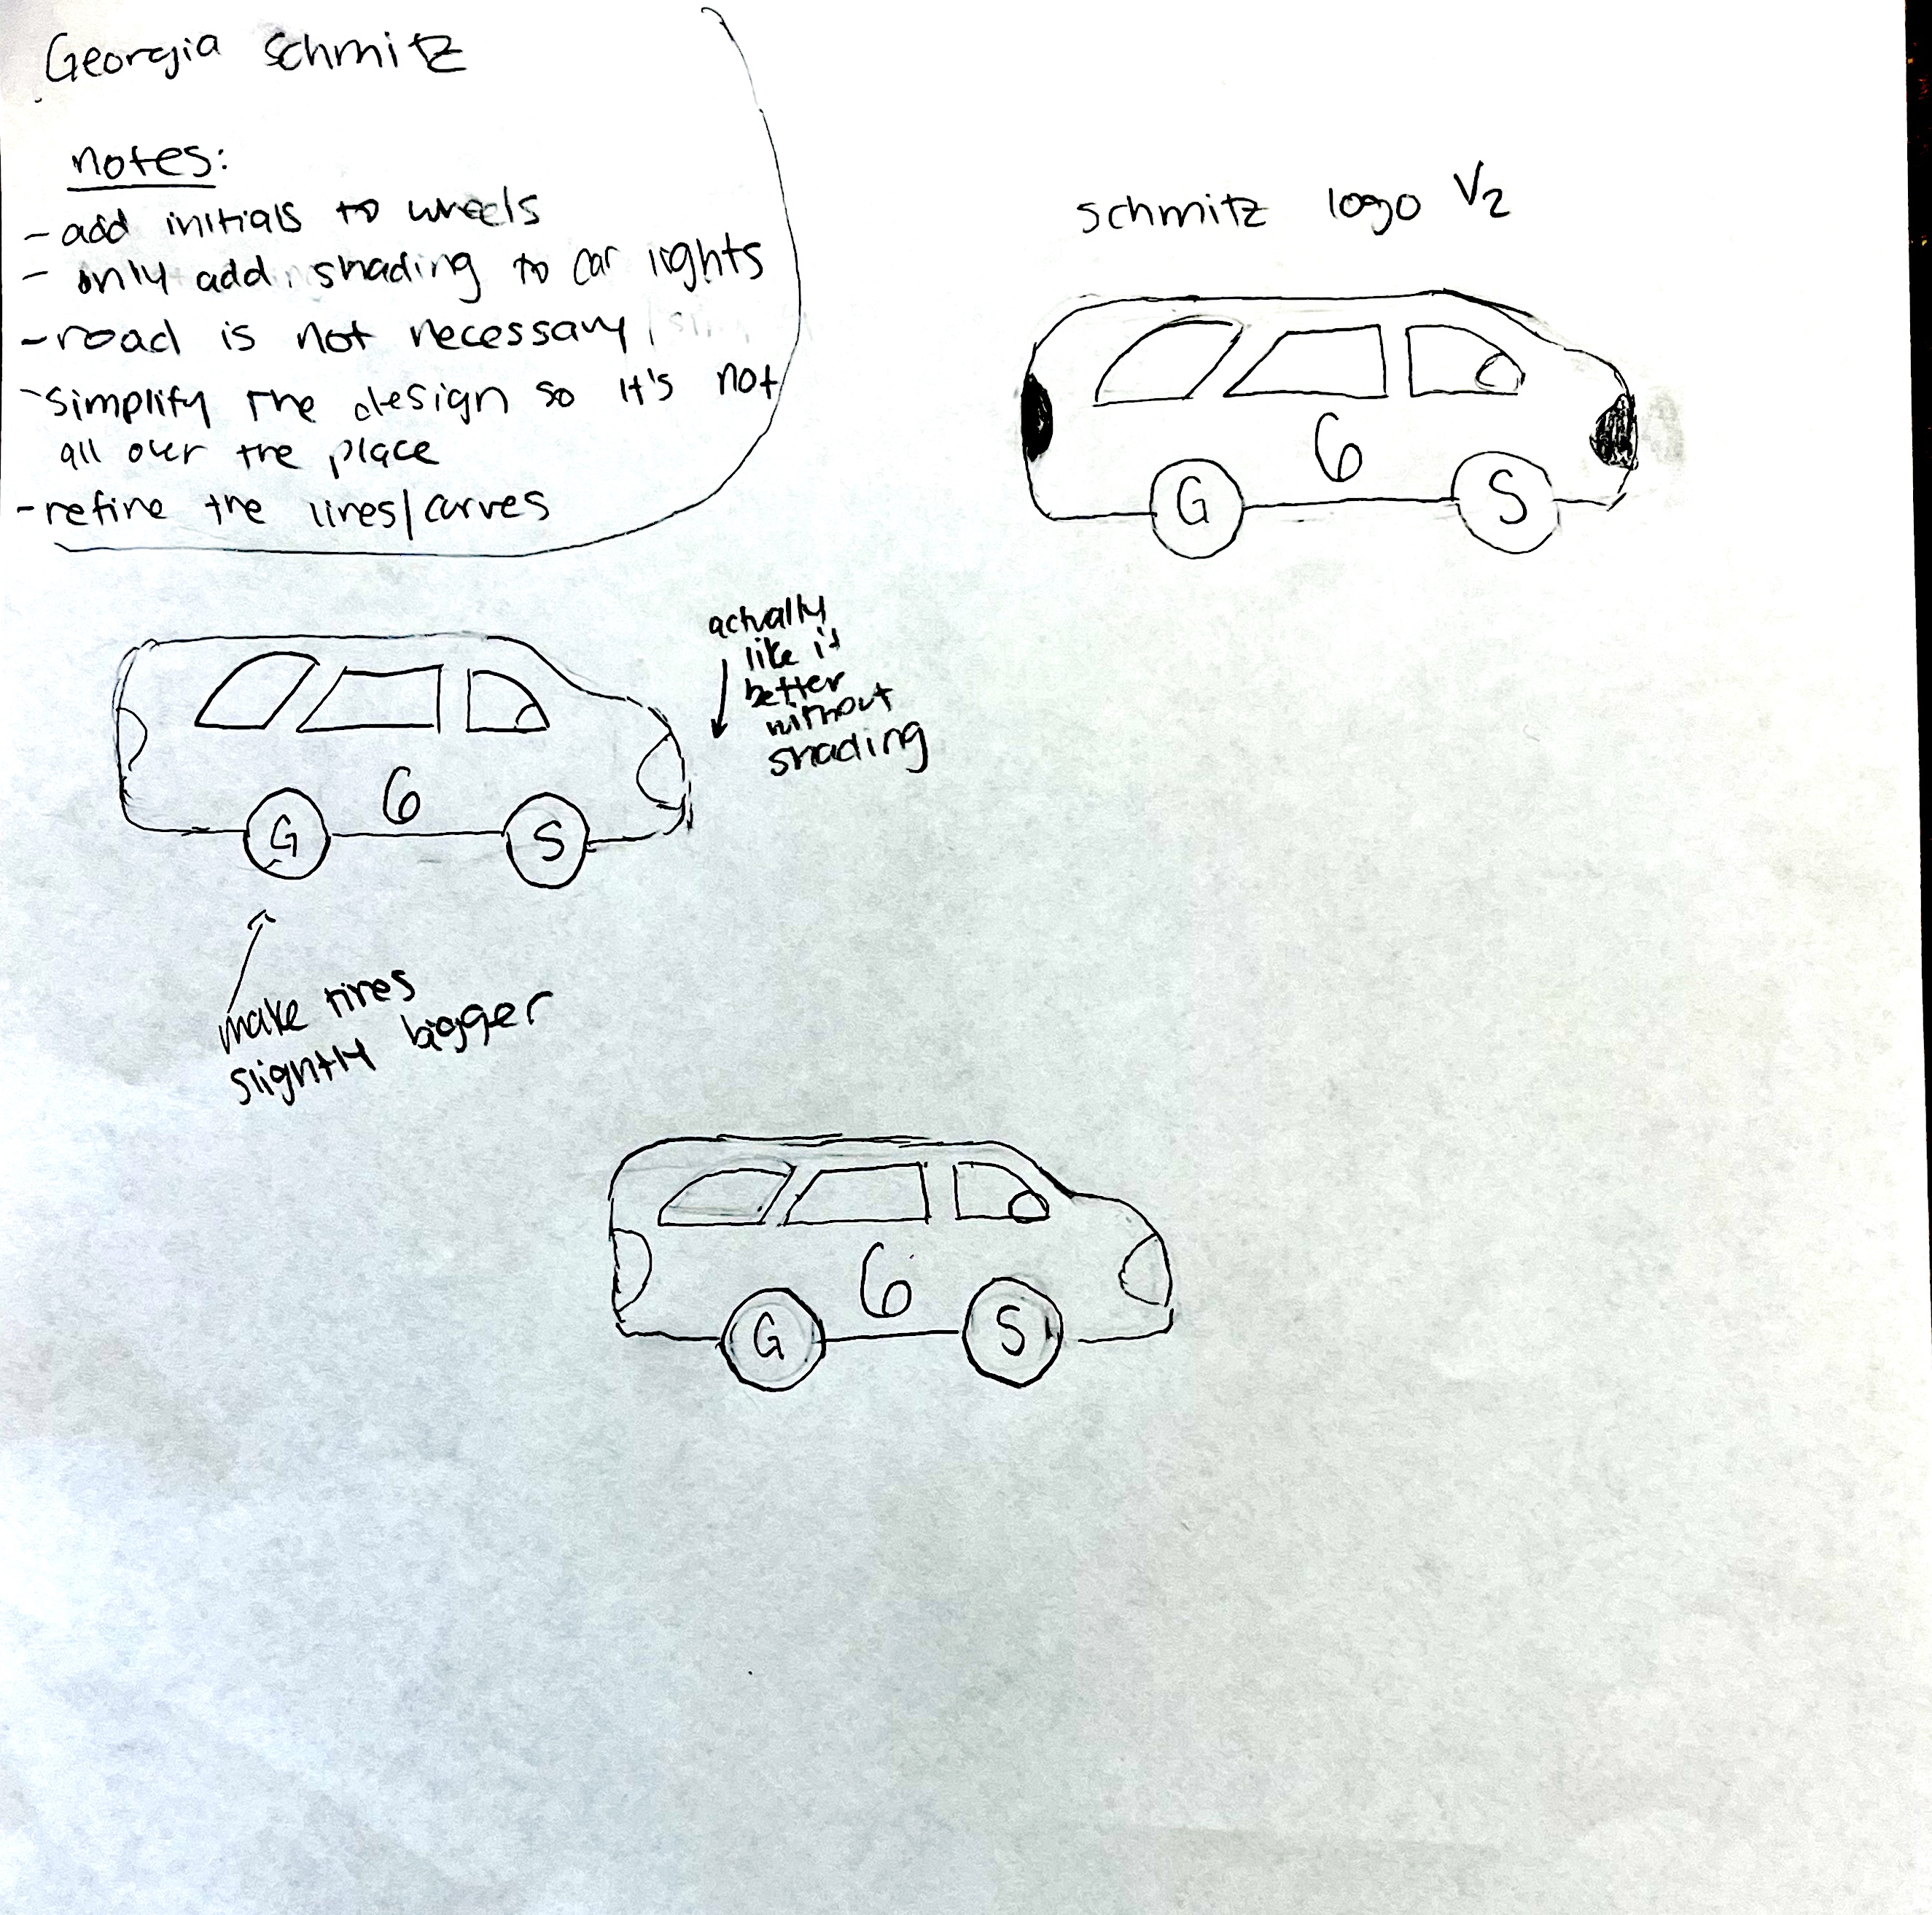 Georgia Schmitz
notes:
- add initials to wheels
- only add shading to car lights
- road is not necessary
- simplify the design so it's not
all over the place
- refine the lines/curves
schmitz logo V2
6
G S
actually
like it
better
without
shading
6
G S
make tires
slightly bigger
6
G S